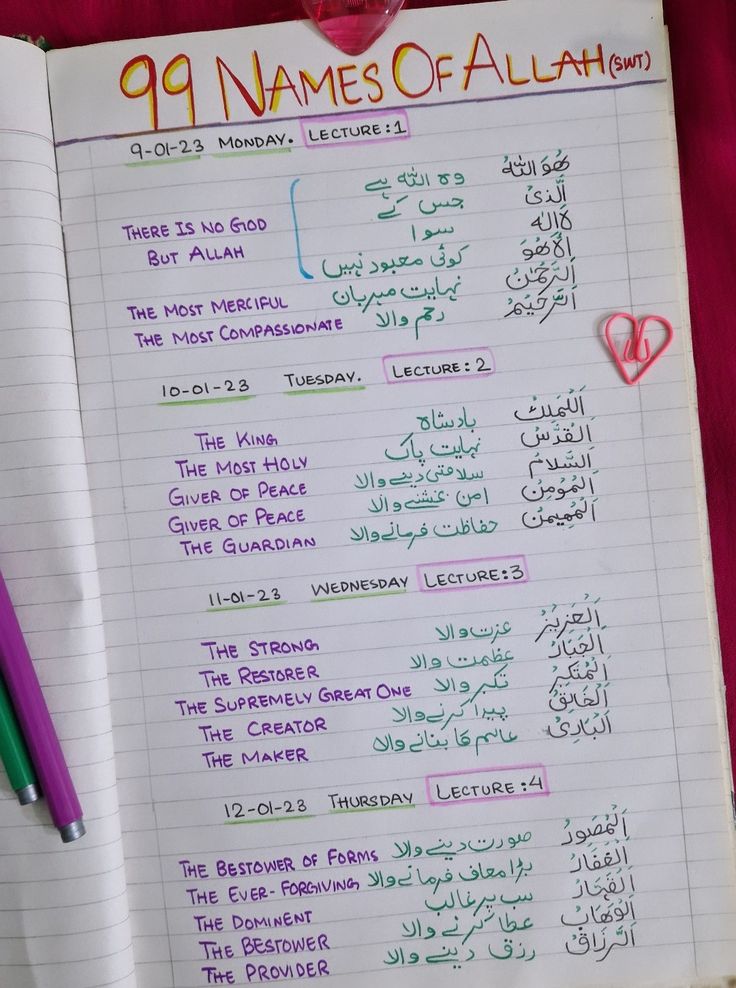 99 NAMES OF ALLAH (SWT)
9-01-23 MONDAY. LECTURE:1
هُوَ اللّٰہُ وہ اللّٰہ ہے
الَّذِیْ جس کے
لَاۤاِلٰہَ سوا
اِلَّا هُوَ کوئی معبود نہیں
THERE IS NO GOD
BUT ALLAH
اَلرَّحْمٰنُ نہایت مہربان THE MOST MERCIFUL
اَلرَّحِیْمُ رحم والا THE MOST COMPASSIONATE
10-01-23 TUESDAY. LECTURE:2
اَلْمَلِكُ بادشاہ THE KING
اَلْقُدُّسُ نہایت پاک THE MOST HOLY
اَلسَّلَامُ سلامتی دینے والا GIVER OF PEACE
اَلْمُؤْمِنُ امن بخشنے والا GIVER OF PEACE
اَلْمُهَیْمِنُ حفاظت فرمانے والا THE GUARDIAN
11-01-23 WEDNESDAY LECTURE:3
اَلْعَزِیْزُ عزت والا THE STRONG
اَلْجَبَّارُ عظمت والا THE RESTORER
اَلْمُتَكَبِّرُ تکبر والا THE SUPREMELY GREAT ONE
اَلْخَالِقُ پیدا کرنے والا THE CREATOR
اَلْبَارِیُٔ عالم کا بنانے والا THE MAKER
12-01-23 THURSDAY LECTURE:4
اَلْمُصَوِّرُ صورت دینے والا THE BESTOWER OF FORMS
اَلْغَفَّارُ بڑا معاف فرمانے والا THE EVER-FORGIVING
اَلْقَهَّارُ سب پر غالب THE DOMINENT
اَلْوَهَّابُ عطا کرنے والا THE BESTOWER
اَلرَّزَّاقُ رزق دینے والا THE PROVIDER